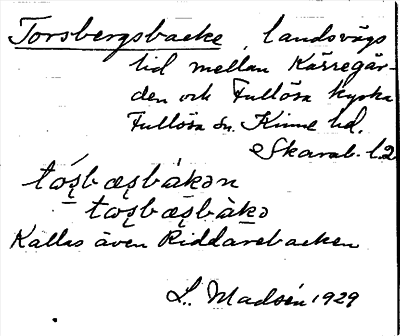 Torsbergsbacke, landsvägs
lid mellan Kärregår-
den och Fullösa kyrka
Fullösa sn. Kinne hd.
Skarab. l.2
tó̱s̱bæs̱bákən
to̱s̱bæ̱s̱bàkə
Kallas även Riddarebacken
L. Madsén 1929